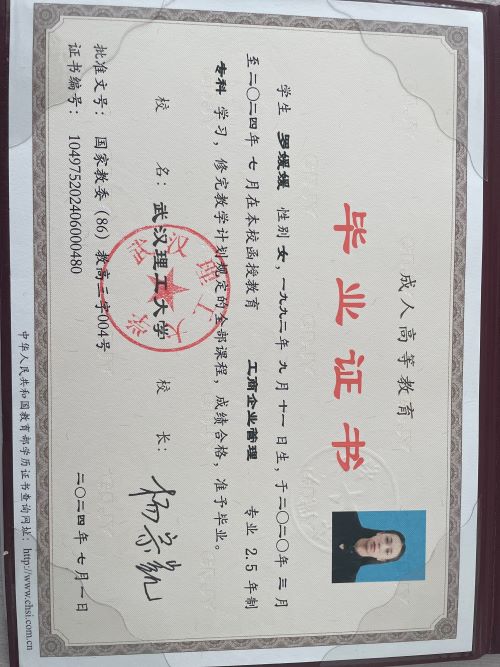 成人高等教育
毕业证书
学生 罗媛媛 性别 女，一九九二年 九 月 十一 日生，于二〇二〇年 三 月
至二〇二四年 七 月在本校函授教育 工商企业管理 专业 2.5 年制
专科 学习，修完教学计划规定的全部课程，成绩合格，准予毕业。
校 名：武汉理工大学 校 长：
批准文号： 国家教委（86）教高三字004号
证书编号： 104975202406000480
二〇二四年 七 月 一 日
中华人民共和国教育部学历证书查询网址：http://www.chsi.com.cn